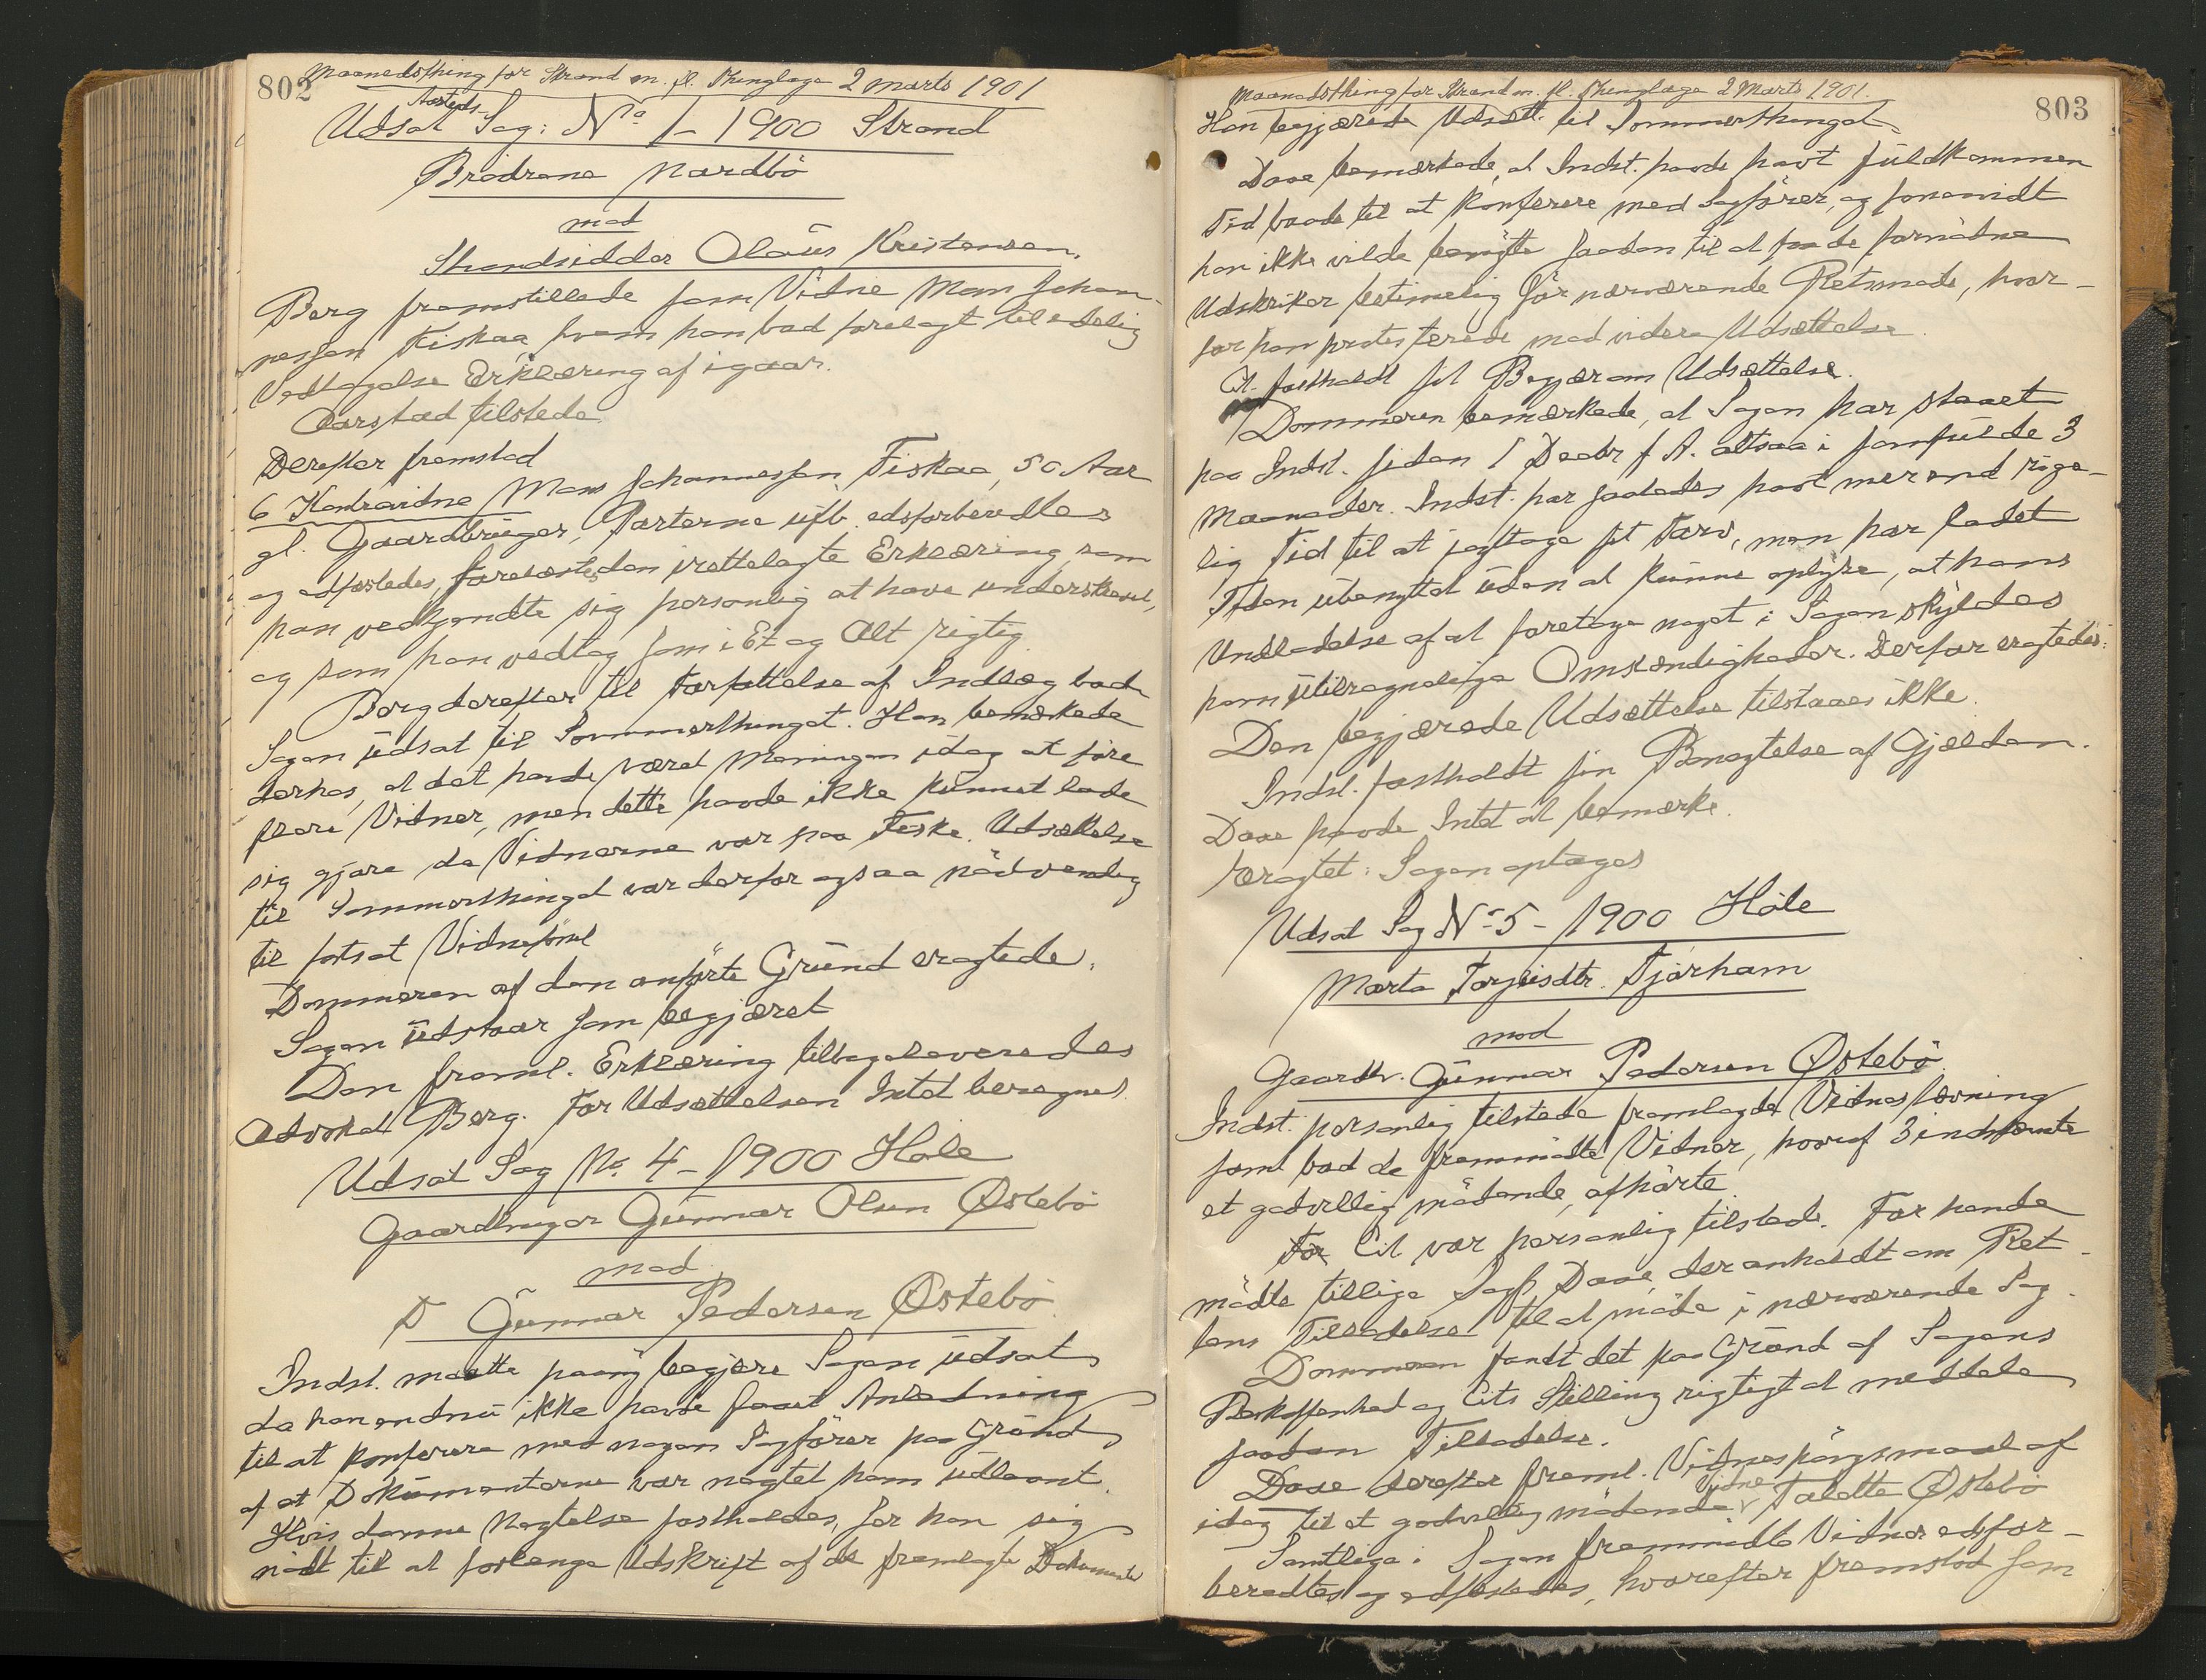 802
Maanedsthing for Strand m. fl. Thinglage 2 Marts 1901
Aasteds-
Udsat Sag: No 1 - 1900 Strand
Brødrene Nordbö
mod
Strandsidder Olaüs Kristensen.
Berg fremstillede som Vidne Mons Johan-
nessen Fiskaa hvem han bad forelagt til edelig
Vedtagelse Erklæring af igaar.
Aarstad tilstede
Derefter fremstod
6 Kontravidne Mons Johannessen Fiskaa, 50 Aar
gl. Gaardbrüger, Parterne üfb. edsforberedtes
og edfæstedes, forelæstes den irettelagte Erklæring, som
han vedkjendte sig personlig at have underskrevet,
og som han vedtog som i Et og Alt rigtig.
Berg derefter til Forfattelse af Indlæg bad
Sagen üdsat til Sommerthinget. Han bemærkede
derhos, at det havde været Meningen idag at føre
flere Vidner, men dette havde ikke künnet lade
sig gjøre da Vidnerne var paa Fiske. Udsættelse
til Sommerthinget var derfor ogsaa nödvendig
til fortsat Vidneførsel
Dommeren af den anførte Gründ eragtede:
Sagen üdstaar som begjæret
Den freml. Erklæring tilbageleveredes
Advokat Berg. For Udsættelsen Intet beregnet.
Udsat Sag No. 4 - 1900 Höle
Gaardbruger Günnar Olsen Østebö
mod
Do Günnar Pedersen Østebö
Indst. maatte paany begjære Sagen üdsat,
da han endnü ikke havde faaet Anledning
til at konferere med nogen Sagfører paa Gründ
af at Dokümenterne var nægtet ham üdlaant.
Hvis denne Nægtelse fastholdes, ser han sig
nödt til at forlange Udskrift af de fremlagte Dokumenter
Maanedsthing for Strand m. fl. Thinglage 2 Marts 1901.
803
Han begjærede Udsætt. til Sommerthinget.
Daae bemærkede, at Indst. havde havt füldkommen
Tid baade til at konferere med Sagfører, og forsaavidt
han ikke vilde benytte saadan til at faa de fornødne
Udskrifter betimelig før nærværende Retsmøde, hvor-
for han protesterede mod videre Udsættelse.
Ct. fastholdt sit Begjær om Udsættelse.
Dommeren bemærkede, at Sagen har staaet
paa Indst. siden 1 Decbr f. A. altsaa i samfülde 3
Maaneder. Indst. har saaledes havt mer end rige-
lig Tid til at iagttage sit Tarv, men har ladet
Tiden übenyttet üden at künne oplyse, at hans
Undladelse af at foretage noget i Sagen skyldes
ham ütilregnelige Omstændigheder. Derfor eragtedes:
Den begjærede Udsættelse tilstaaes ikke.
Indst. fastholdt sin Benægtelse af Gjælden.
Daae havde Intet at bemærke.
Eragtet: Sagen optages
Udsat Sag No 5 - 1900 Höle
Marta Torjüsdtr. Tjörham
mod
Gaardbr. Günnar Pedersen Østebö.
Indst. personlig tilstede fremlagde Vidnestævning
samt bad de fremmødte Vidner, hvoraf 3 indstævnte
et godvillig mødende, afhørte
For Cit var personlig tilstede. For hende
mødte tillige Sagf. Daae, der anholdt om Ret-
tens Tilladelse til at møde i nærværende Sag.
Dommeren fandt det paa Gründ af Sagens
Beskaffenhed og Cits Stilling rigtigt at meddele
saadan Tilladelse.
Daae derefter freml. Vidnespørgsmaal af
idag til et godvillig mødende Vidne Østebö
Samtlige i Sagen fremmødte Vidner edsfor-
beredtes og edfæstedes, hvorefter fremstod som